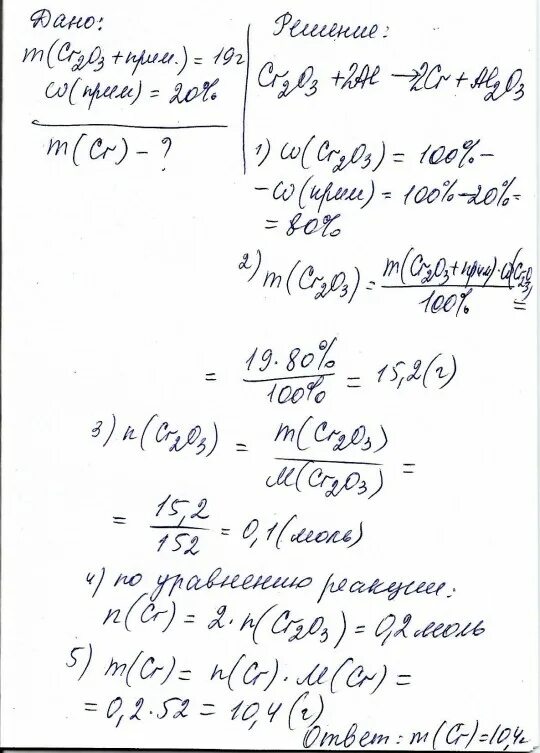 Дано:
m(Cr₂O₃+прим.) = 19г
ω(прим) = 20%
m(Cr) - ?
Решение:
Cr₂O₃ + 2Al → 2Cr + Al₂O₃
1) ω(Cr₂O₃) = 100% -
- ω(прим) = 100% - 20% =
= 80%
2) m(Cr₂O₃) = m(Cr₂O₃+прим)·ω(Cr₂O₃) / 100% =
= 19·80% / 100% = 15,2(г)
3) n(Cr₂O₃) = m(Cr₂O₃) / M(Cr₂O₃) =
= 15,2 / 152 = 0,1(моль)
4) по уравнению реакции:
n(Cr) = 2·n(Cr₂O₃) = 0,2 моль
5) m(Cr) = n(Cr)·M(Cr) =
= 0,2·52 = 10,4(г)
Ответ: m(Cr)=10,4г